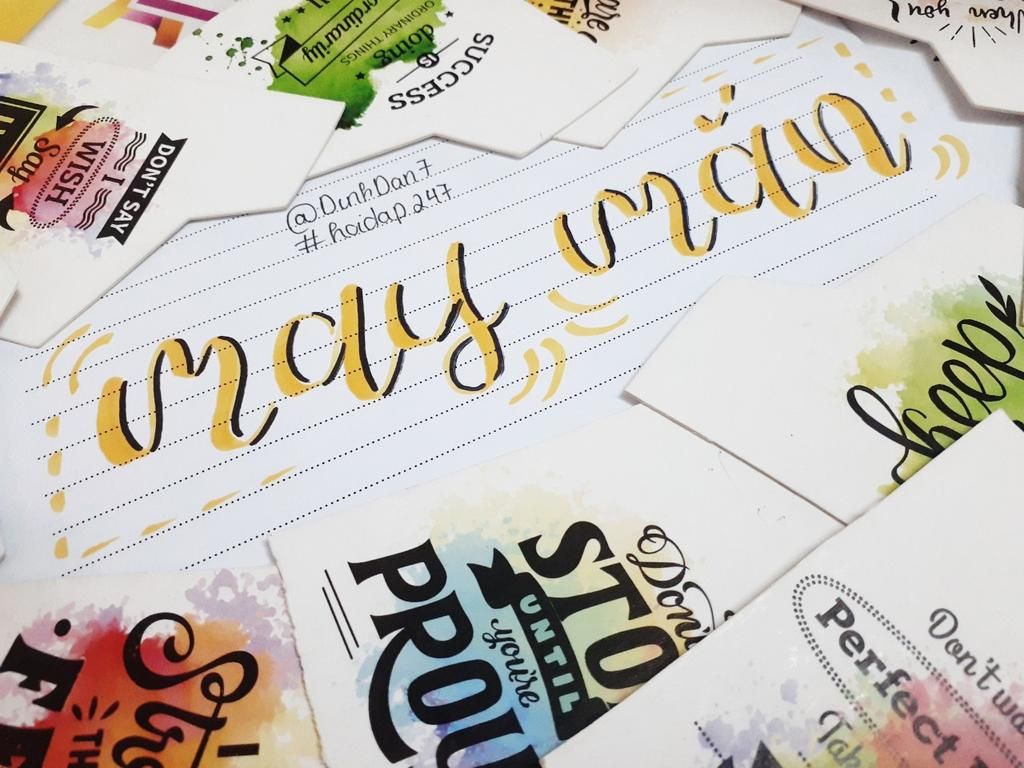 when you!
SUCCESS
IS
doing
ORDINARY THINGS
DON'T SAY
I
WISH
Say
@DunhDan7
#hoidap.247
may mắn
keep
Don't
STO
UNTIL
you're
PROU
Don't wa
Perfect
Tak
Str
I
TH